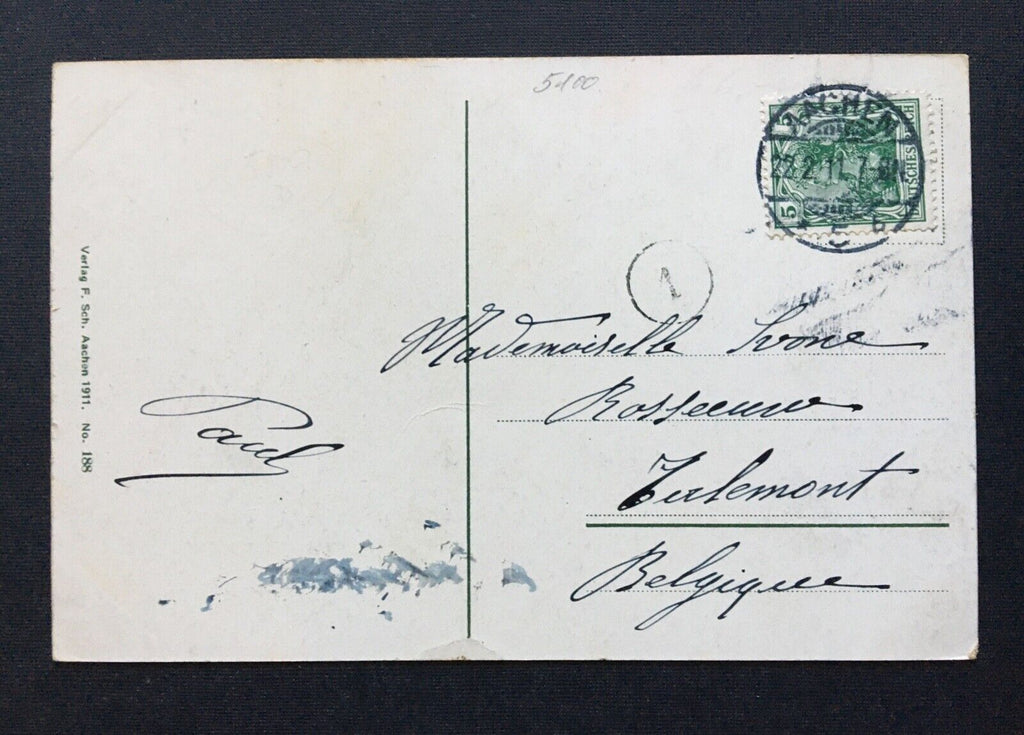 5100
AACHEN
22.2.11.7-8N.
* 5 b
DEUTSCHES REICH
5
1
Mademoiselle Ivone
Rosseeuw
Tirlemont
Belgique
Paul
Verlag F. Sch. Aachen 1911. No. 188